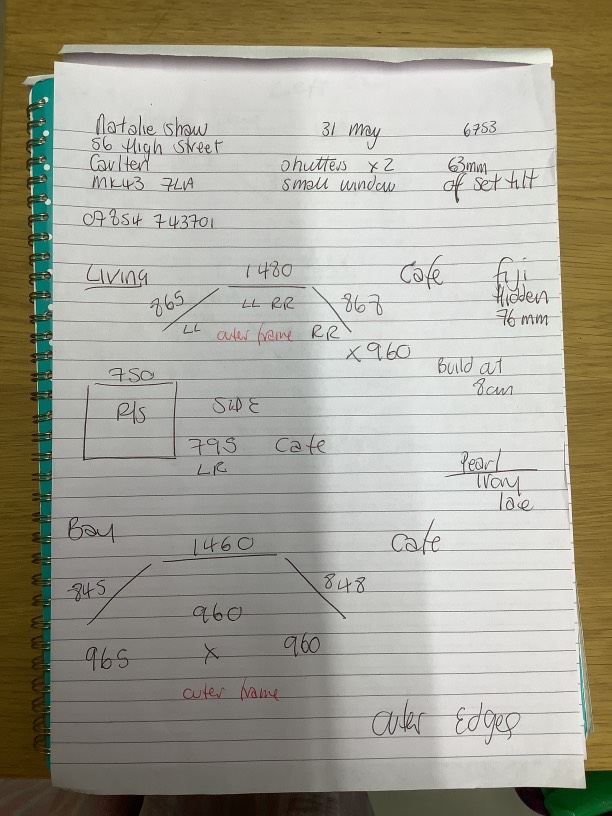 Natalie Shaw 31 May 6753
56 High Street
Carlton shutters x 2 63mm
MK43 7LA small window of set tilt
07854 743701
Living 1480 Cafe Fiji
865 LL RR 868 Hidden
LL outer frame RR 76 mm
x 960
750 Build at
8cm
P/S SIDE
795 Cafe
LR
Pearl
Ivory
lace
Bay
1460 Cafe
845 848
960
965 x 960
outer frame
outer Edges